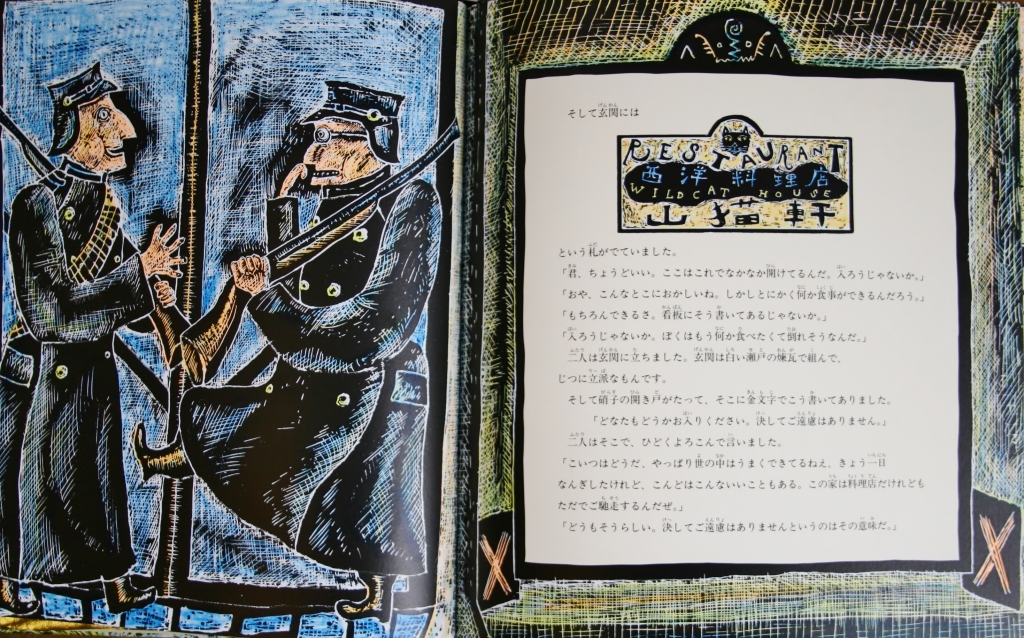 そして玄関には
RESTAURANT
西洋料理店
WILDCAT HOUSE
山猫軒
という札がでていました。
「君、ちょうどいい。ここはこれでなかなか開けてるんだ。入ろうじゃないか。」
「おや、こんなとこにおかしいね。しかしとにかく何か食事ができるんだろう。」
「もちろんできるさ。看板にそう書いてあるじゃないか。」
「入ろうじゃないか。ぼくはもう何か食べたくて倒れそうなんだ。」
二人は玄関に立ちました。玄関は白い瀬戸の煉瓦で組んで、
じつに立派なもんです。
そして硝子の開き戸がたって、そこに金文字でこう書いてありました。
「どなたもどうかお入りください。決してご遠慮はありません。」
二人はそこで、ひどくよろこんで言いました。
「こいつはどうだ、やっぱり世の中はうまくできてるねえ、きょう一日
なんぎしたけれど、こんどはこんないいこともある。この家は料理店だけれども
ただでご馳走するんだぜ。」
「どうもそうらしい。決してご遠慮はありませんというのはその意味だ。」